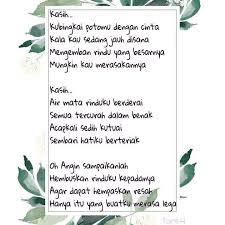 Kasih...
Kubingkai potomu dengan cinta
Kala kau sedang jauh disana
Mengemban rindu yang besarnya
Mungkin kau merasakannya
Kasih...
Air mata rinduku berderai
Semua tercurah dalam benak
Acapkali sedih kutuai
Sembari hatiku berteriak
Oh Angin sampaikanlah
Hembuskan rinduku kepadanya
Agar dapat hempaskan resah
Hanya itu yang buatku merasa lega